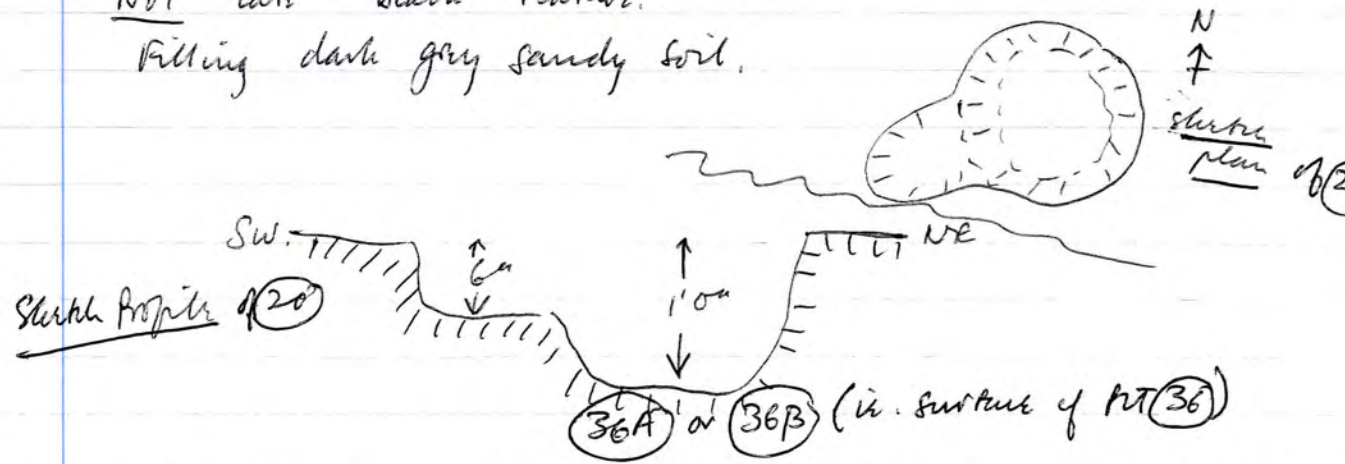 NOT late
Filling dark grey sandy soil.
N
sketch
plan of 2
SW.
NE
6"
1'0"
Sketch Profile of 20
36A or 36B (ie. surface of PIT 36)